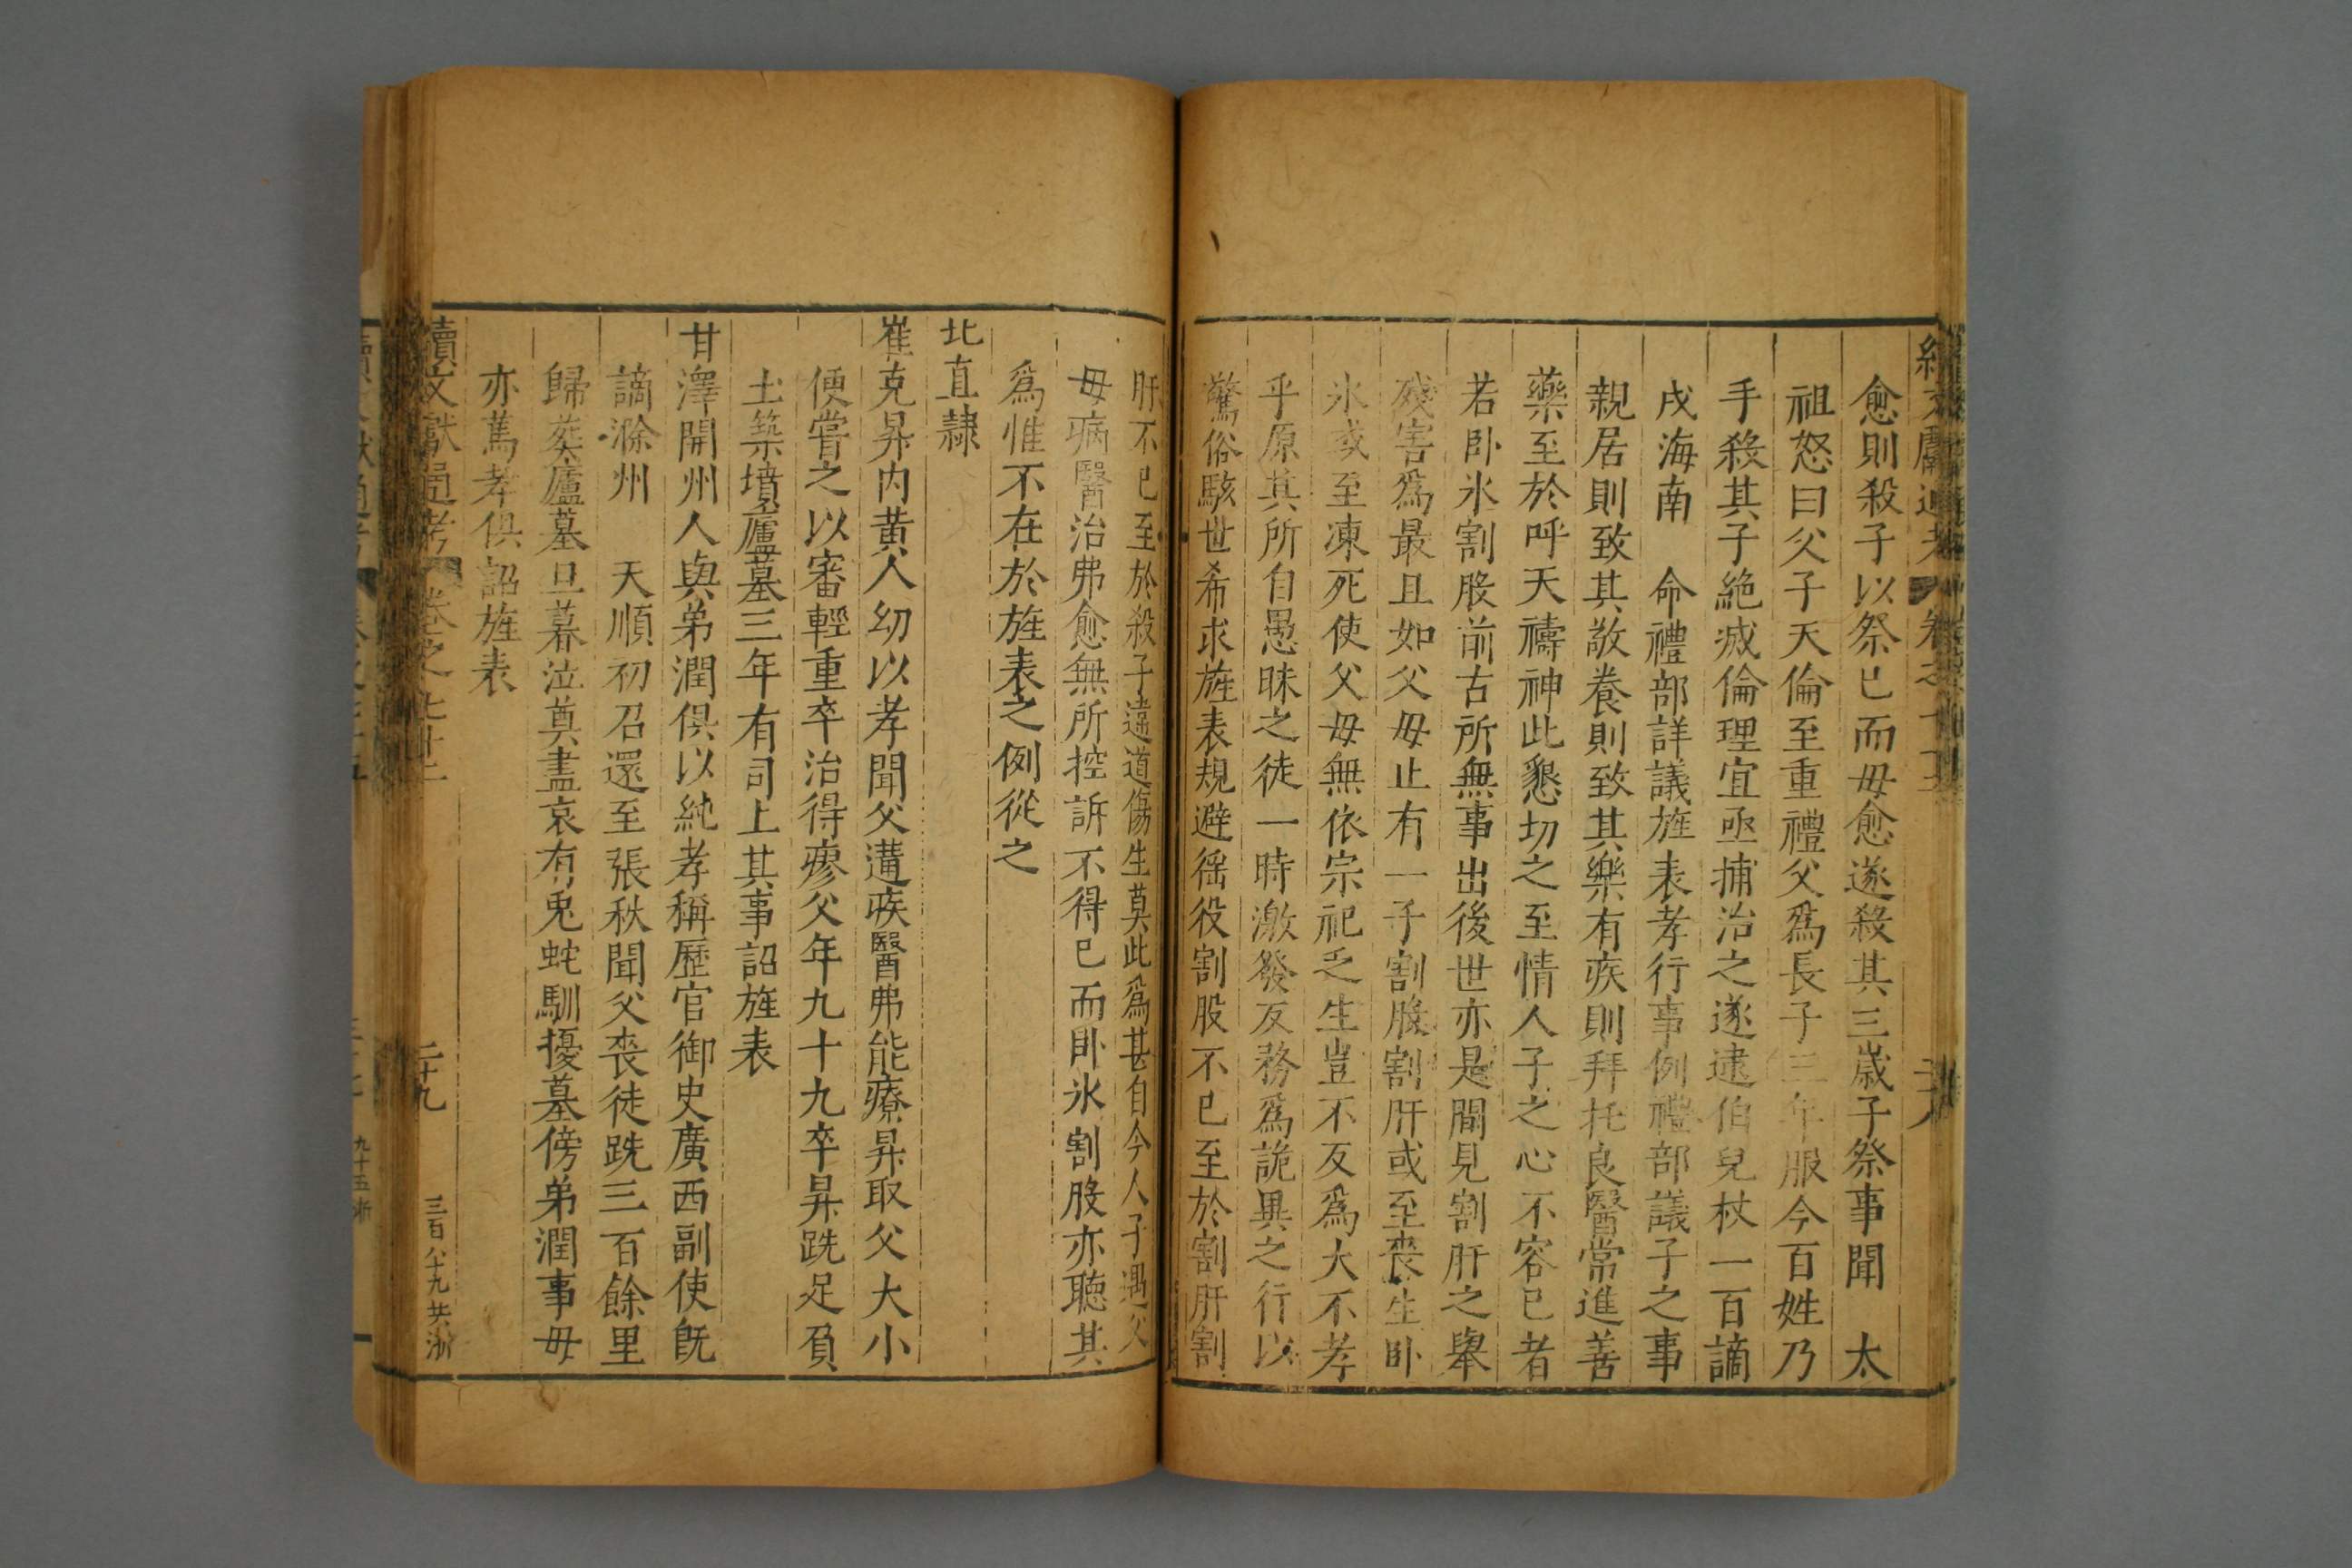 愈則殺子以祭已而母愈遂殺其三歲子祭事聞　太
祖怒曰父子天倫至重禮父爲長子三年服今百姓乃
手殺其子絶滅倫理宜亟捕治之遂逮伯兒杖一百謫
戍海南　命禮部詳議旌表孝行事例禮部議子之事
親居則致其敬養則致其樂有疾則拜托良醫常進善
藥至於呼天禱神此懇切之至情人子之心不容已者
若卧氷割股前古所無事出後世亦是間見割肝之舉
殘害爲最且如父母止有一子割股割肝或至喪生卧
氷或至凍死使父母無依宗祀乏生豈不反爲大不孝
乎原其所自愚昧之徒一時激發反務爲詭異之行以
驚俗駭世希求旌表規避徭役割股不已至於割肝割
肝不已至於殺子違道傷生莫此爲甚自今人子遇父
母病醫治弗愈無所控訴不得已而卧氷割股亦聽其
爲惟不在於旌表之例從之
北直隷
崔克昇内黄人幼以孝聞父遘疾醫弗能療昇取父大小
便嘗之以審輕重卒治得瘳父年九十九卒昇跣足負
土築墳廬墓三年有司上其事詔旌表
甘澤開州人與弟潤俱以純孝稱歷官御史廣西副使旣
謫滁州　天順初召還至張秋聞父喪徒跣三百餘里
歸葬廬墓旦暮泣奠盡哀有兎蛇馴擾墓傍弟潤事母
亦篤孝俱詔旌表
續文獻通考　卷之七十二　二十九　三百八十九　共浙